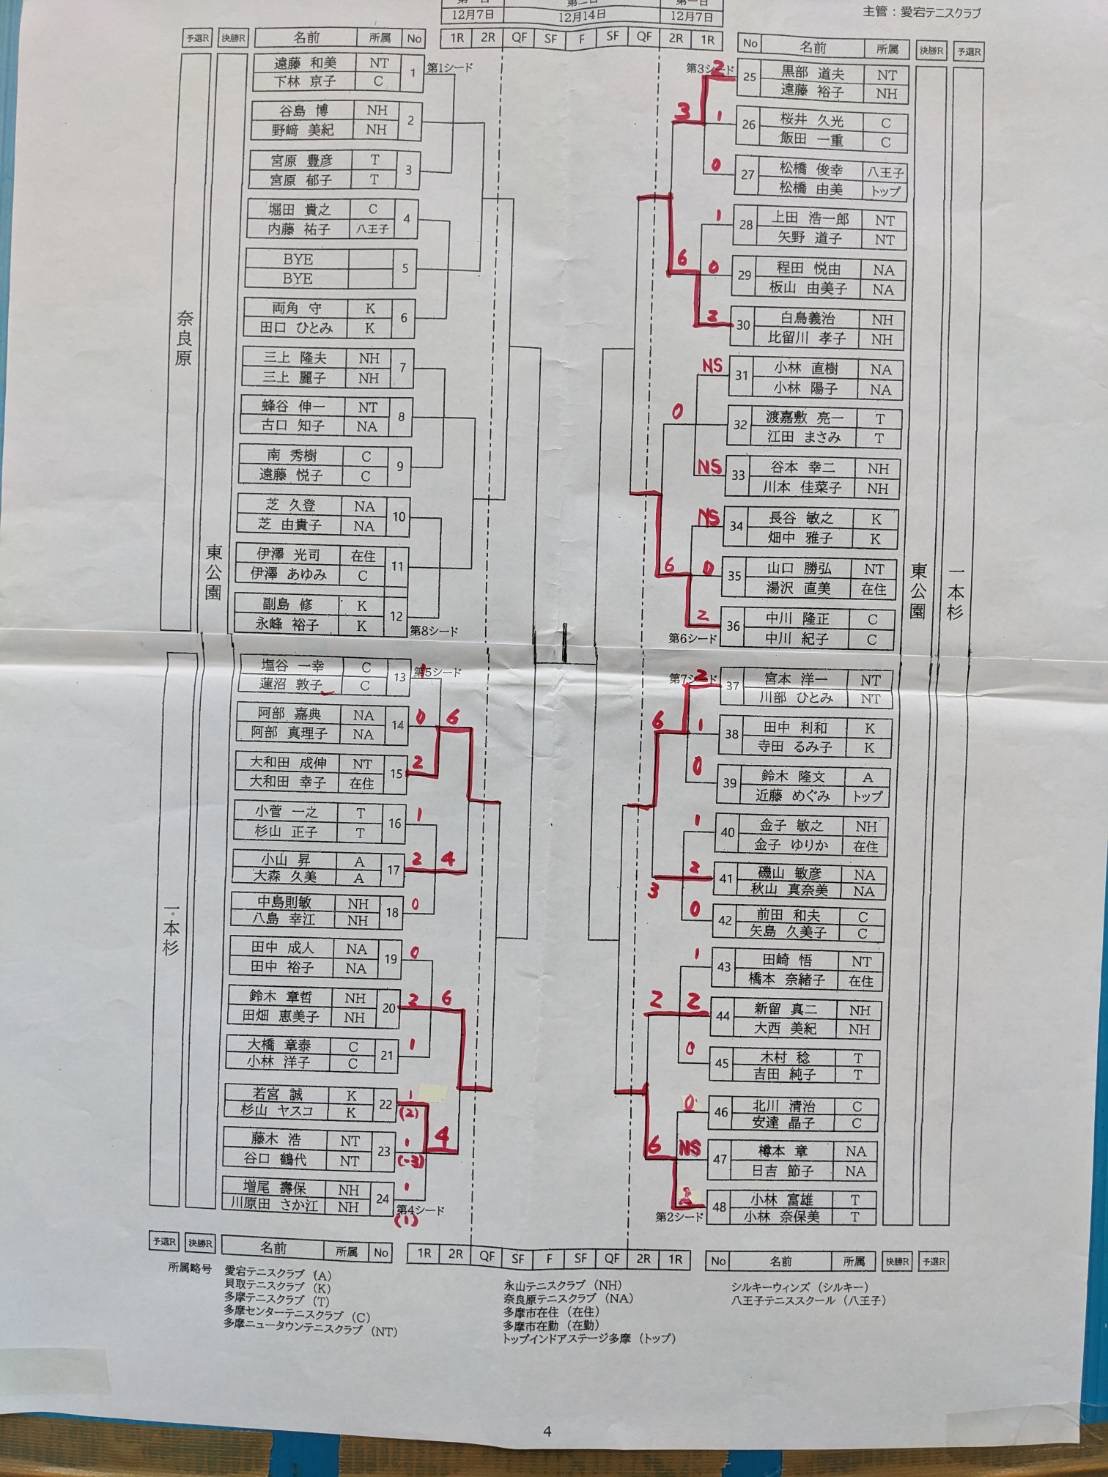 主管：愛宕テニスクラブ
12月7日 12月14日 12月7日
予選R 決勝R 名前 所属 No 1R 2R QF SF F SF QF 2R 1R No 名前 所属 決勝R 予選R
奈良原
東公園
遠藤 和美 NT
下林 京子 C
1 第1シード
谷島 博 NH
野﨑 美紀 NH
2
宮原 豊彦 T
宮原 郁子 T
3
堀田 貴之 C
内藤 祐子 八王子
4
BYE
BYE
5
両角 守 K
田口 ひとみ K
6
三上 隆夫 NH
三上 麗子 NH
7
蜂谷 伸一 NT
古口 知子 NA
8
南 秀樹 C
遠藤 悦子 C
9
芝 久登 NA
芝 由貴子 NA
10
伊澤 光司 在住
伊澤 あゆみ C
11
副島 修 K
永峰 裕子 K
12 第8シード
一本杉
塩谷 一幸 C
蓮沼 敦子 C
13 第5シード 1
阿部 嘉典 NA
阿部 真理子 NA
14 0 6
大和田 成伸 NT
大和田 幸子 在住
15 2
小菅 一之 T
杉山 正子 T
16 1
小山 昇 A
大森 久美 A
17 2 4
中島則敏 NH
八島 幸江 NH
18 0
田中 成人 NA
田中 裕子 NA
19 0
鈴木 章哲 NH
田畑 恵美子 NH
20 2 6
大橋 章泰 C
小林 洋子 C
21 1
若宮 誠 K
杉山 ヤスコ K
22 1 (2)
藤木 浩 NT
谷口 鶴代 NT
23 1 (-3) 4
増尾 壽保 NH
川原田 さか江 NH
24 1 第4シード (1)
第3シード 2 25
黒部 道夫 NT
遠藤 裕子 NH
3 1 26
桜井 久光 C
飯田 一重 C
0 27
松橋 俊幸 八王子
松橋 由美 トップ
1 28
上田 浩一郎 NT
矢野 道子 NT
6 0 29
程田 悦由 NA
板山 由美子 NA
2 30
白鳥義治 NH
比留川 孝子 NH
NS 31
小林 直樹 NA
小林 陽子 NA
0 32
渡嘉敷 亮一 T
江田 まさみ T
NS 33
谷本 幸二 NH
川本 佳菜子 NH
NS 34
長谷 敏之 K
畑中 雅子 K
6 0 35
山口 勝弘 NT
湯沢 直美 在住
2 第6シード 36
中川 隆正 C
中川 紀子 C
東公園
一本杉
第7シード 2 37
宮本 洋一 NT
川部 ひとみ NT
6 1 38
田中 利和 K
寺田 るみ子 K
0 39
鈴木 隆文 A
近藤 めぐみ トップ
1 40
金子 敏之 NH
金子 ゆりか 在住
3 2 41
磯山 敏彦 NA
秋山 真奈美 NA
0 42
前田 和夫 C
矢島 久美子 C
1 43
田崎 悟 NT
橋本 奈緒子 在住
2 2 44
新留 真二 NH
大西 美紀 NH
0 45
木村 稔 T
吉田 純子 T
0 46
北川 清治 C
安達 晶子 C
6 NS 47
樽本 章 NA
日吉 節子 NA
第2シード 48
小林 富雄 T
小林 奈保美 T
予選R 決勝R 名前 所属 No 1R 2R QF SF F SF QF 2R 1R No 名前 所属 決勝R 予選R
所属略号 愛宕テニスクラブ（A）
貝取テニスクラブ（K）
多摩テニスクラブ（T）
多摩センターテニスクラブ（C）
多摩ニュータウンテニスクラブ（NT）
永山テニスクラブ（NH）
奈良原テニスクラブ（NA）
多摩市在住（在住）
多摩市在勤（在勤）
トップインドアステージ多摩（トップ）
シルキーウィンズ（シルキー）
八王子テニススクール（八王子）
4